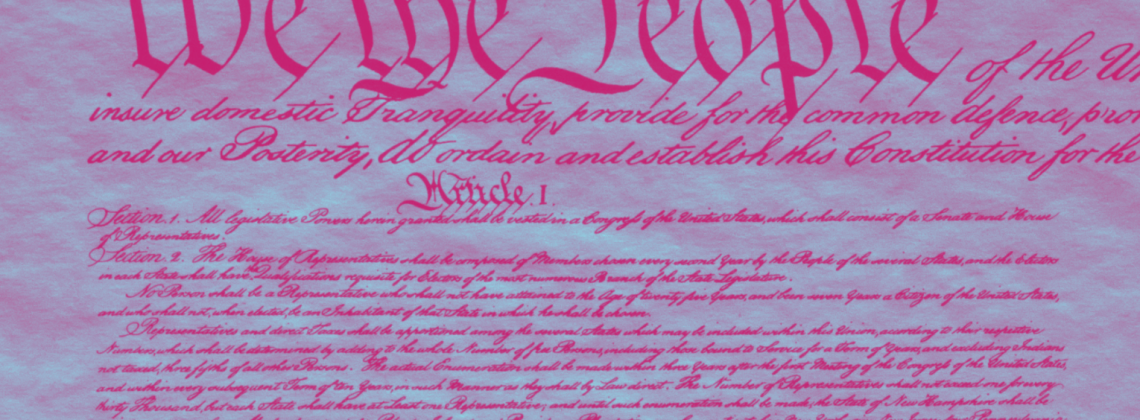 We the People of the Un
insure domestic Tranquility, provide for the common defence, pro
and our Posterity, do ordain and establish this Constitution for the
Article. I.
Section. 1. All legislative Powers herein granted shall be vested in a Congress of the United States, which shall consist of a Senate and House
of Representatives.
Section. 2. The House of Representatives shall be composed of Members chosen every second Year by the People of the several States, and the Electors
in each State shall have Qualifications requisite for Electors of the most numerous Branch of the State Legislature.
No Person shall be a Representative who shall not have attained to the Age of twenty five Years, and been seven Years a Citizen of the United States,
and who shall not, when elected, be an Inhabitant of that State in which he shall be chosen.
Representatives and direct Taxes shall be apportioned among the several States which may be included within this Union, according to their respective
Numbers, which shall be determined by adding to the whole Number of free Persons, including those bound to Service for a Term of Years, and excluding Indians
not taxed, three fifths of all other Persons. The actual Enumeration shall be made within three Years after the first Meeting of the Congress of the United States,
and within every subsequent Term of ten Years, in such Manner as they shall by Law direct. The Number of Representatives shall not exceed one for every
thirty Thousand, but each State shall have at Least one Representative; and until such enumeration shall be made, the State of New Hampshire shall be